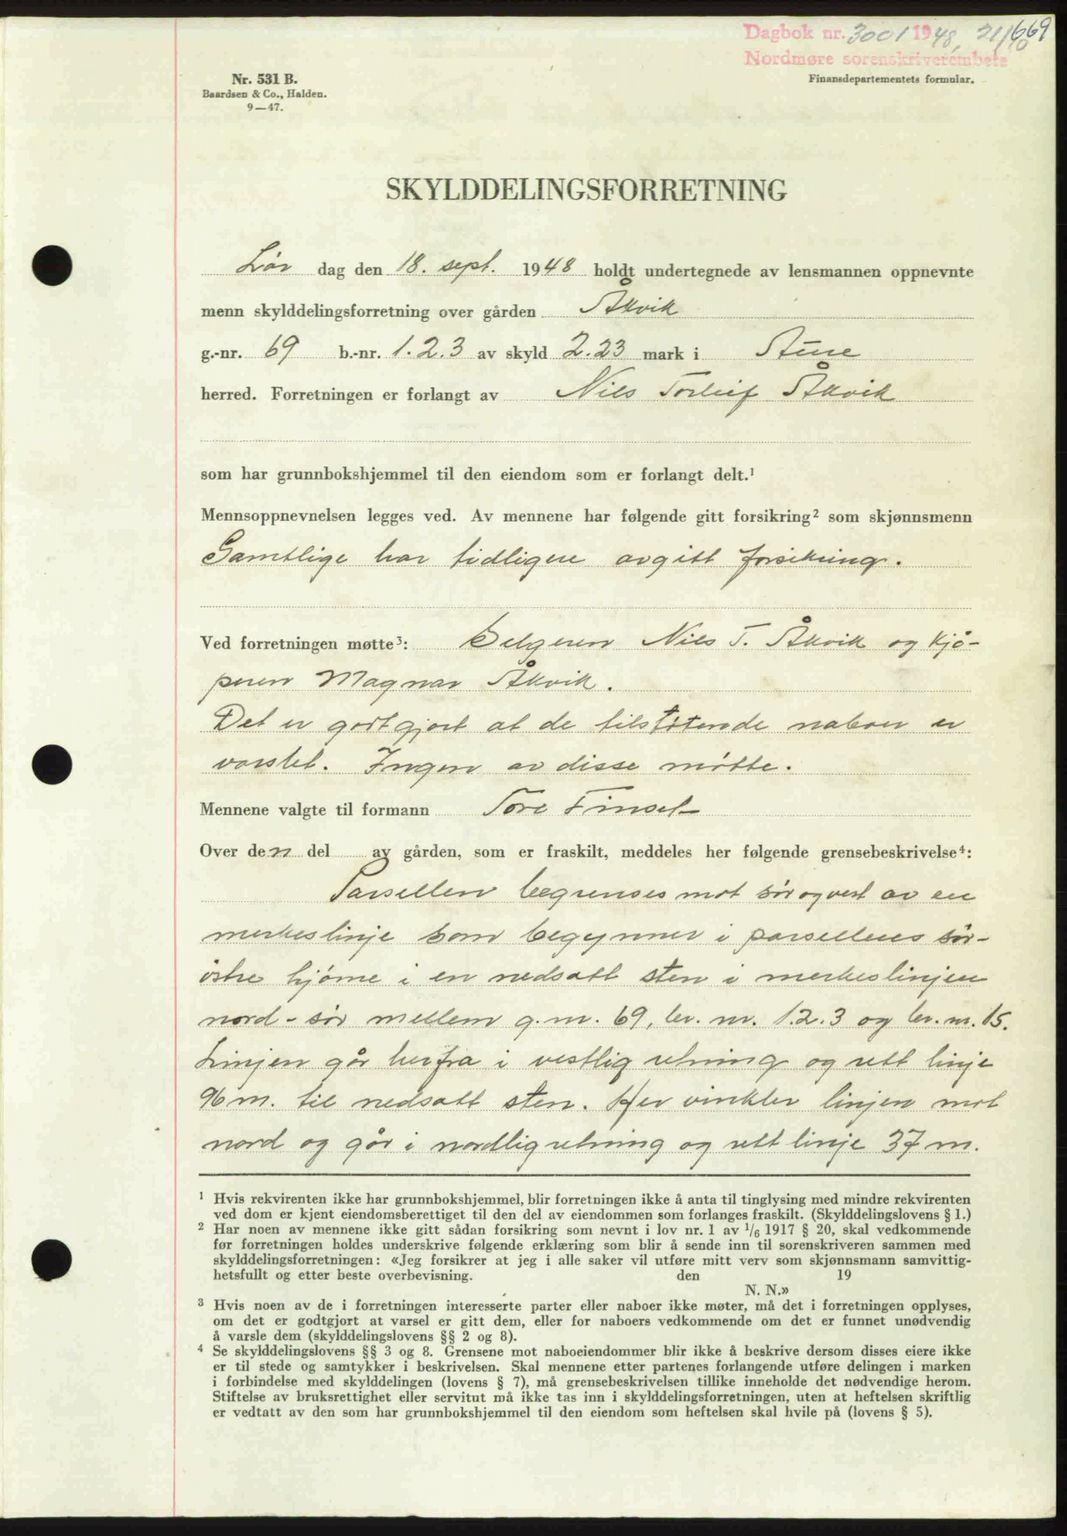 Dagbok nr. 3001 1948, 21/10
669
Nordmøre sorenskriverembete
Nr. 531 B.
Baardsen & Co., Halden.
9—47.
Finansdepartementets formular.
SKYLDDELINGSFORRETNING
Lør dag den 18. sept. 1948 holdt undertegnede av lensmannen oppnevnte
menn skylddelingsforretning over gården Åkvik
g.-nr. 69 b.-nr. 1.2.3 av skyld 2.23 mark i Aure
herred. Forretningen er forlangt av Nils Torleif Åkvik
som har grunnbokshjemmel til den eiendom som er forlangt delt.¹
Mennsoppnevnelsen legges ved. Av mennene har følgende gitt forsikring² som skjønnsmenn
Samtlige har tidligere avgitt forsikring.
Ved forretningen møtte³: Selgeren Nils T. Åkvik og kjø-
peren Magnar Åkvik.
Det er godtgjort at de tilstøtende naboer er
varslet. Ingen av disse møtte.
Mennene valgte til formann Tore Finset
Over den del av gården, som er fraskilt, meddeles her følgende grensebeskrivelse⁴:
Parsellen begrenses mot sør og vest av en
merkeslinje som begynner i parsellens sør-
østre hjørne i en nedsatt sten i merkeslinjen
nord-sør mellem g.nr. 69, br. nr. 1.2.3 og br. nr. 15.
Linjen går herfra i vestlig retning og rett linje
96 m. til nedsatt sten. Her vinkler linjen mot
nord og går i nordlig retning og rett linje 37 m.
¹ Hvis rekvirenten ikke har grunnbokshjemmel, blir forretningen ikke å anta til tinglysing med mindre rekvirenten
ved dom er kjent eiendomsberettiget til den del av eiendommen som forlanges fraskilt. (Skylddelingslovens § 1.)
² Har noen av mennene ikke gitt sådan forsikring som nevnt i lov nr. 1 av 1/6 1917 § 20, skal vedkommende
før forretningen holdes underskrive følgende erklæring som blir å sende inn til sorenskriveren sammen med
skylddelingsforretningen: «Jeg forsikrer at jeg i alle saker vil utføre mitt verv som skjønnsmann samvittig-
hetsfullt og etter beste overbevisning. den 19
N. N.»
³ Hvis noen av de i forretningen interesserte parter eller naboer ikke møter, må det i forretningen opplyses,
om det er godtgjort at varsel er gitt dem, eller for naboers vedkommende om det er funnet unødvendig
å varsle dem (skylddelingslovens §§ 2 og 8).
⁴ Se skylddelingslovens §§ 3 og 8. Grensene mot naboeiendommer blir ikke å beskrive dersom disses eiere ikke
er til stede og samtykker i beskrivelsen. Skal mennene etter partenes forlangende utføre delingen i marken
i forbindelse med skylddelingen (lovens § 7), må grensebeskrivelsen tillike inneholde det nødvendige herom.
Stiftelse av bruksrettighet eller servitut må ikke tas inn i skylddelingsforretningen, uten at heftelsen skriftlig
er vedtatt av den som har grunnbokshjemmel til den eiendom som heftelsen skal hvile på (lovens § 5).